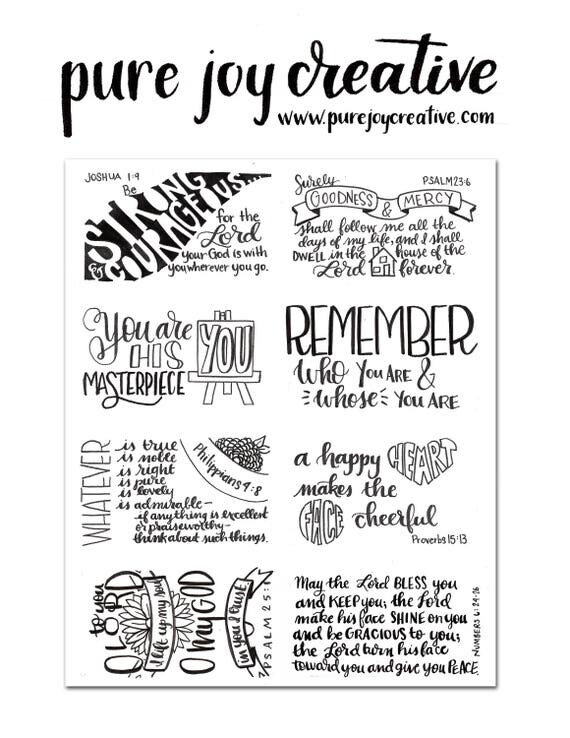 pure joy creative
www.purejoycreative.com
JOSHUA 1:9
Be
STRONG
& COURAGEOUS...
for the
Lord
your God is with
you wherever you go.
Surely
PSALM 23:6
GOODNESS & MERCY
shall follow me all the
days of my life, and I shall
DWELL in the house of the
Lord forever.
You are
HIS
MASTERPIECE
YOU
REMEMBER
WHO YOU ARE &
whose YOU ARE
WHATEVER
is true
is noble
is right
is pure
is lovely
is admirable—
if anything is excellent
or praiseworthy—
think about such things.
Philippians 4:8
a happy HEART
makes the
FACE cheerful
Proverbs 15:13
to you
O LORD
I lift up my soul
O my GOD
in you I trust
PSALM 25:1
May the Lord BLESS you
and KEEP you; the Lord
make his face SHINE on you
and be GRACIOUS to you;
the Lord turn his face
toward you and give you PEACE.
NUMBERS 6:24-26